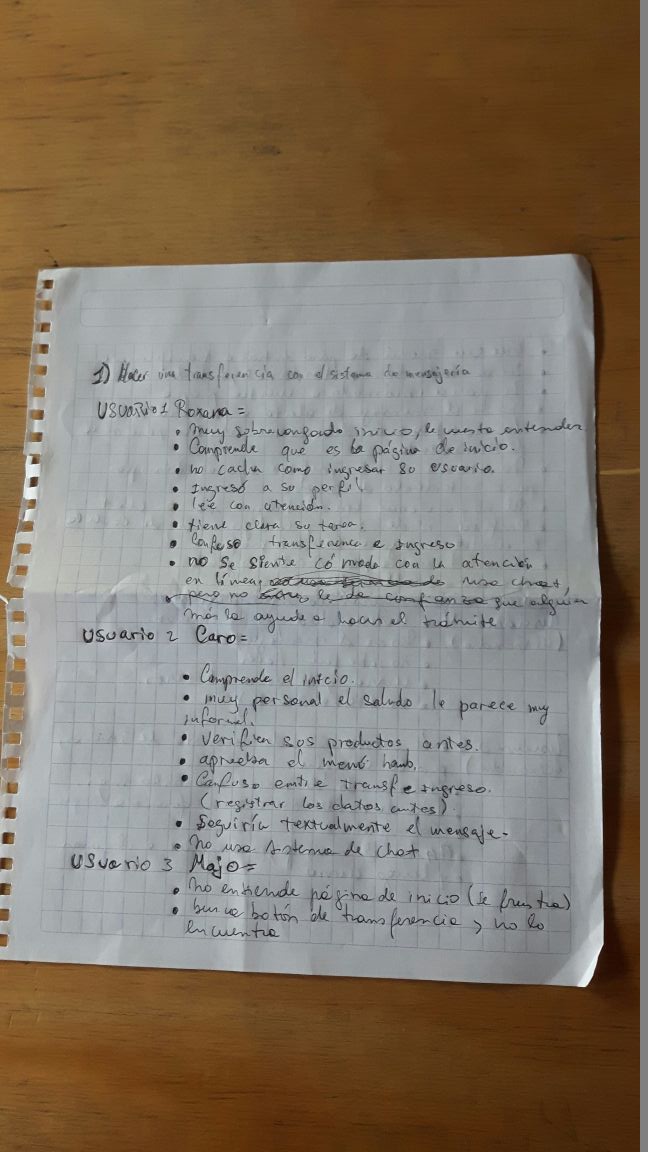 1) Hacer una transferencia con el sistema de mensajería
USUARIO 1 Roxana =
• muy sobrecargado inicio, le cuesta entender
• Comprende que es la página de inicio.
• no cacha como ingresar su usuario.
• Ingresó a su perfil
• lee con atención.
• tiene clara su tarea.
• Confuso transferencia e Ingreso
• no se siente cómoda con la atención
en línea, usa chat,
• pero no le da confianza que alguien
más la ayude a hacer el trámite
USUARIO 2 Caro =
• Comprende el inicio.
• muy personal el saludo le parece muy
informal.
• verifica sus productos antes.
• aprueba el menú hamb.
• Confuso entre transf e ingreso.
(registrar los datos antes)
• Seguiría textualmente el mensaje.
• No usa sistema de chat
USUARIO 3 Majo =
• no entiende página de inicio (se frustra)
• busca botón de transferencia y no lo
encuentra